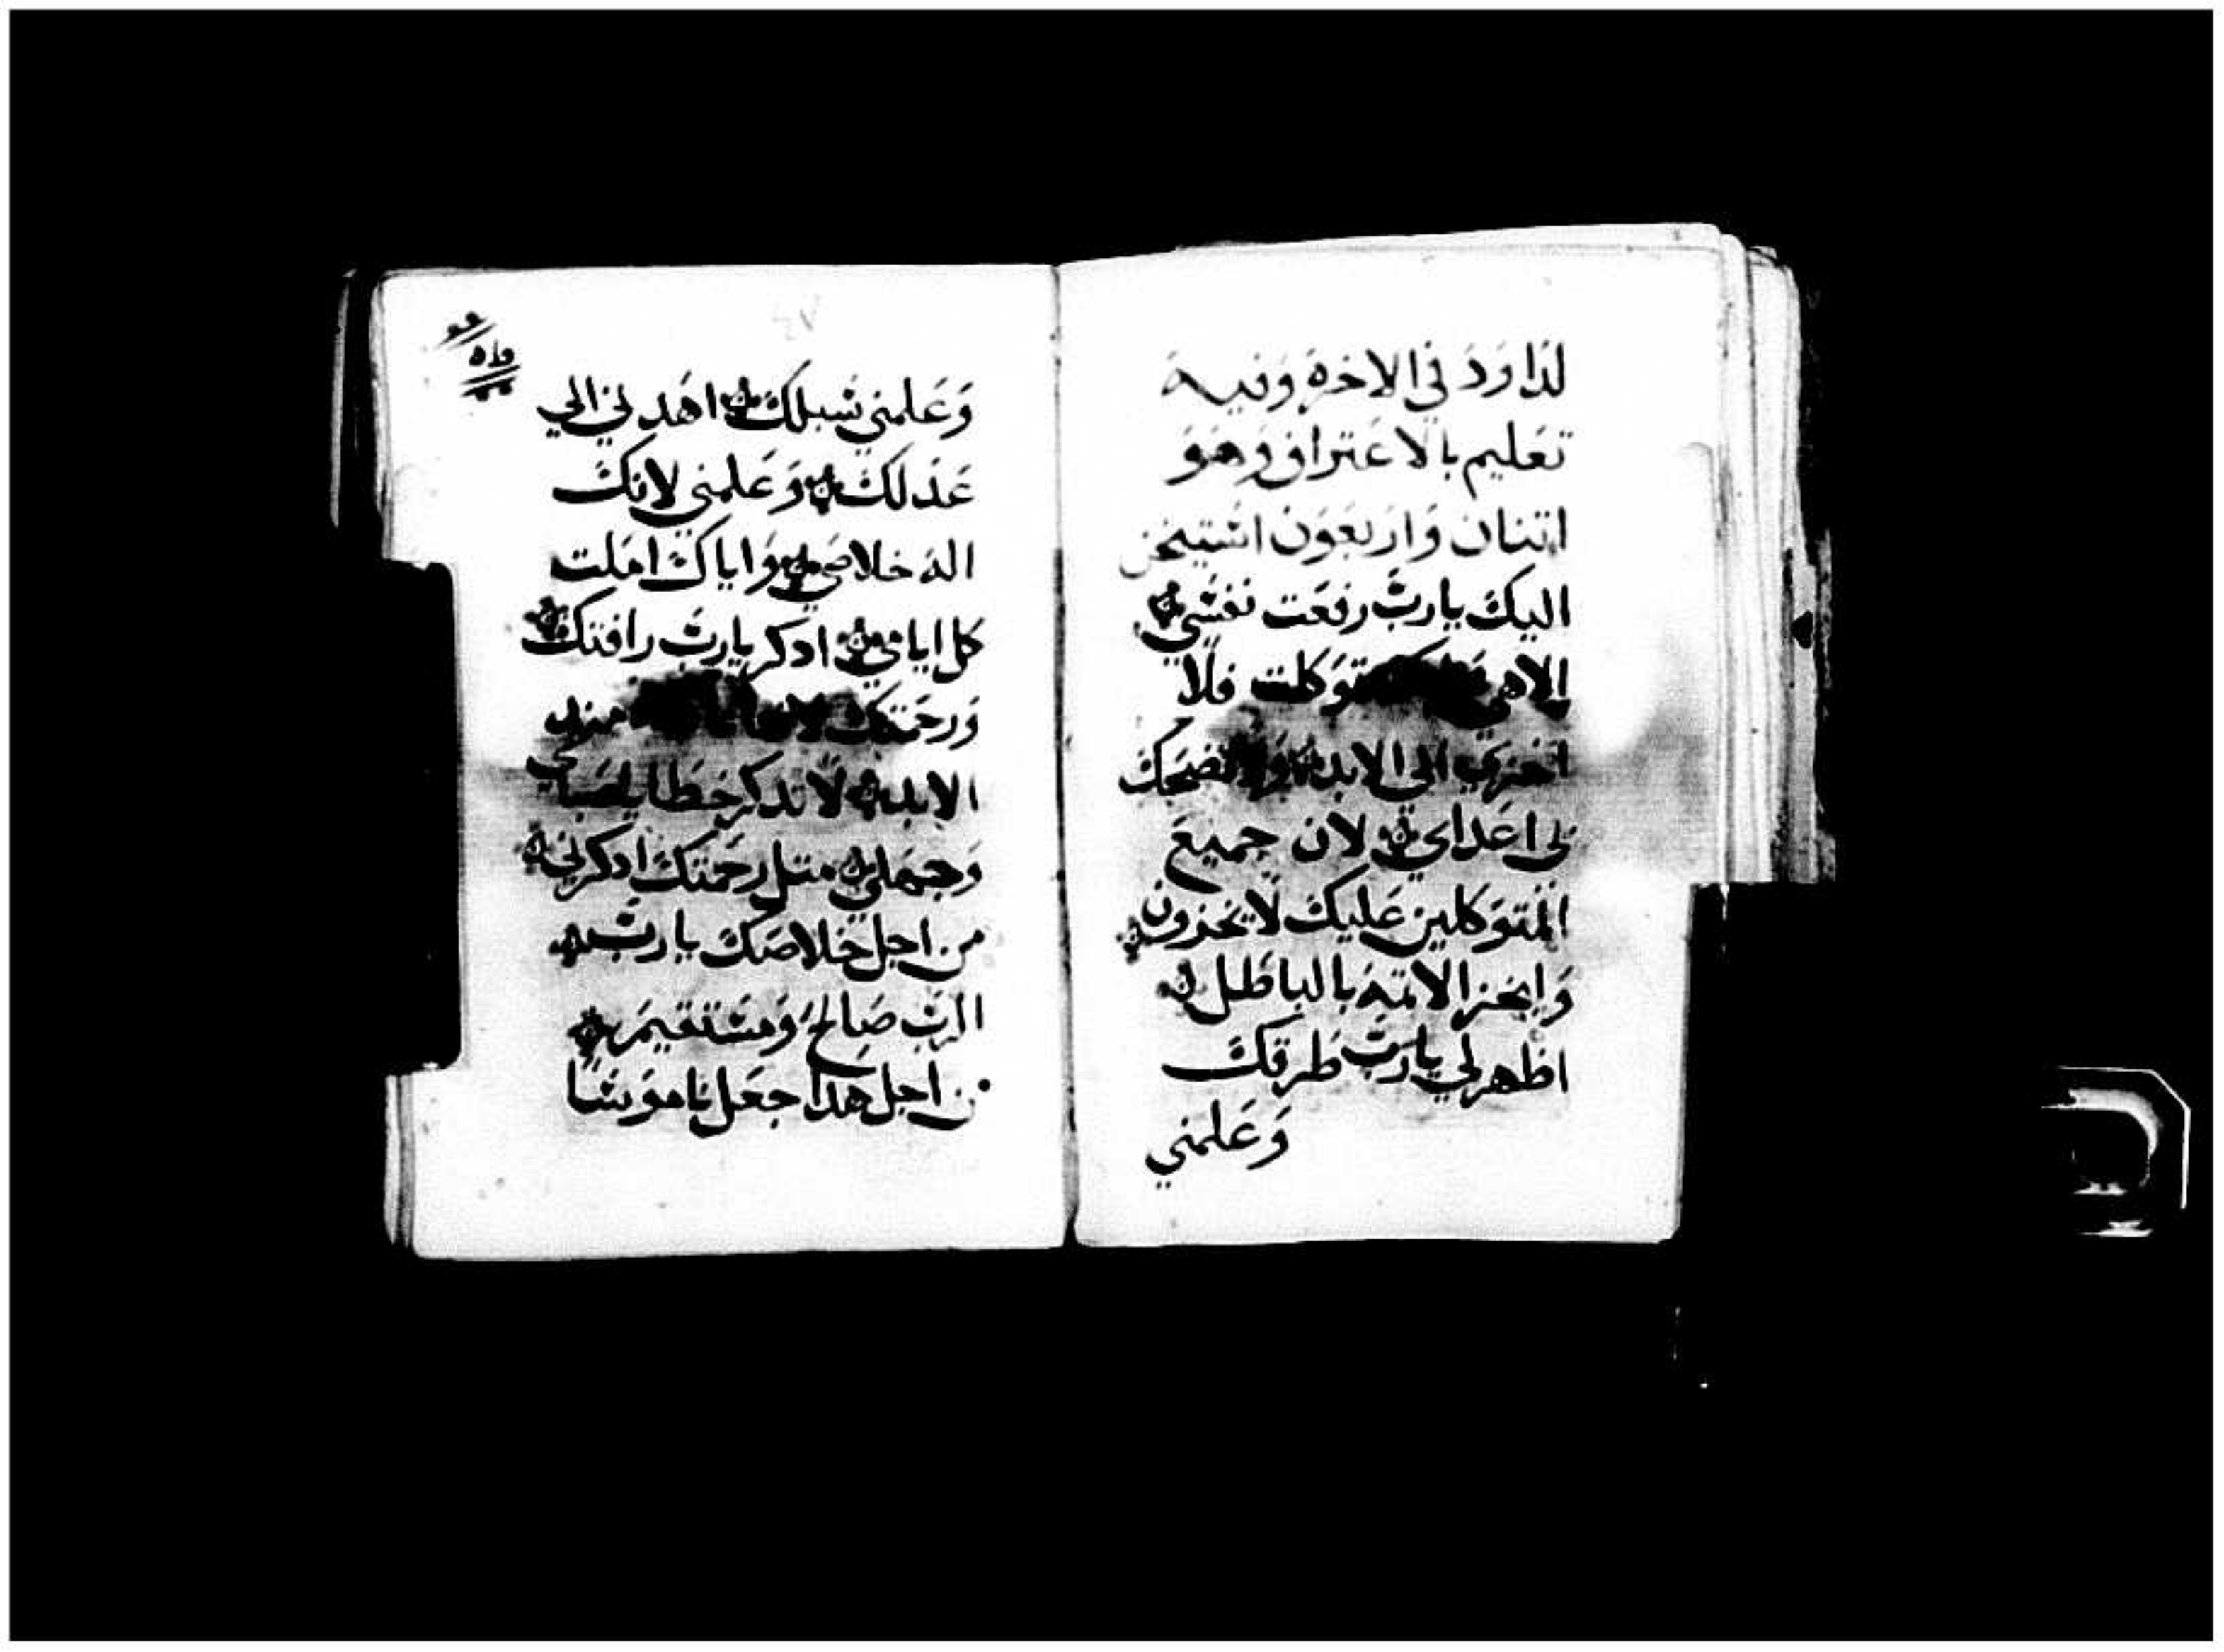 لداود في الاخره وفيه
تعليم بالاعتراف وهو
اتنان واربعون استيخن
اليك يارب رفعت نفسي
الاهي توكلت فلا
اخزي الى الابد ولا تضحك
لى اعداي لان جميع
المتوكلين عليك لا يخزون
وليخز الاتمه بالباطل
اظهر لي يارب طرقك
وعلمني
وعلمني سبلك اهدني الي
عدلك وعلمني لانك
اله خلاصي واياك املت
كل ايامي ادكر يارب رافتك
ورحمتك لانها
الابد لا تدكر خطايا صباي
وجهلي متل رحمتك ادكرني
من اجل خلاصك يارب
الرب صالح ومستقيم
من اجل هدا جعل ناموسا